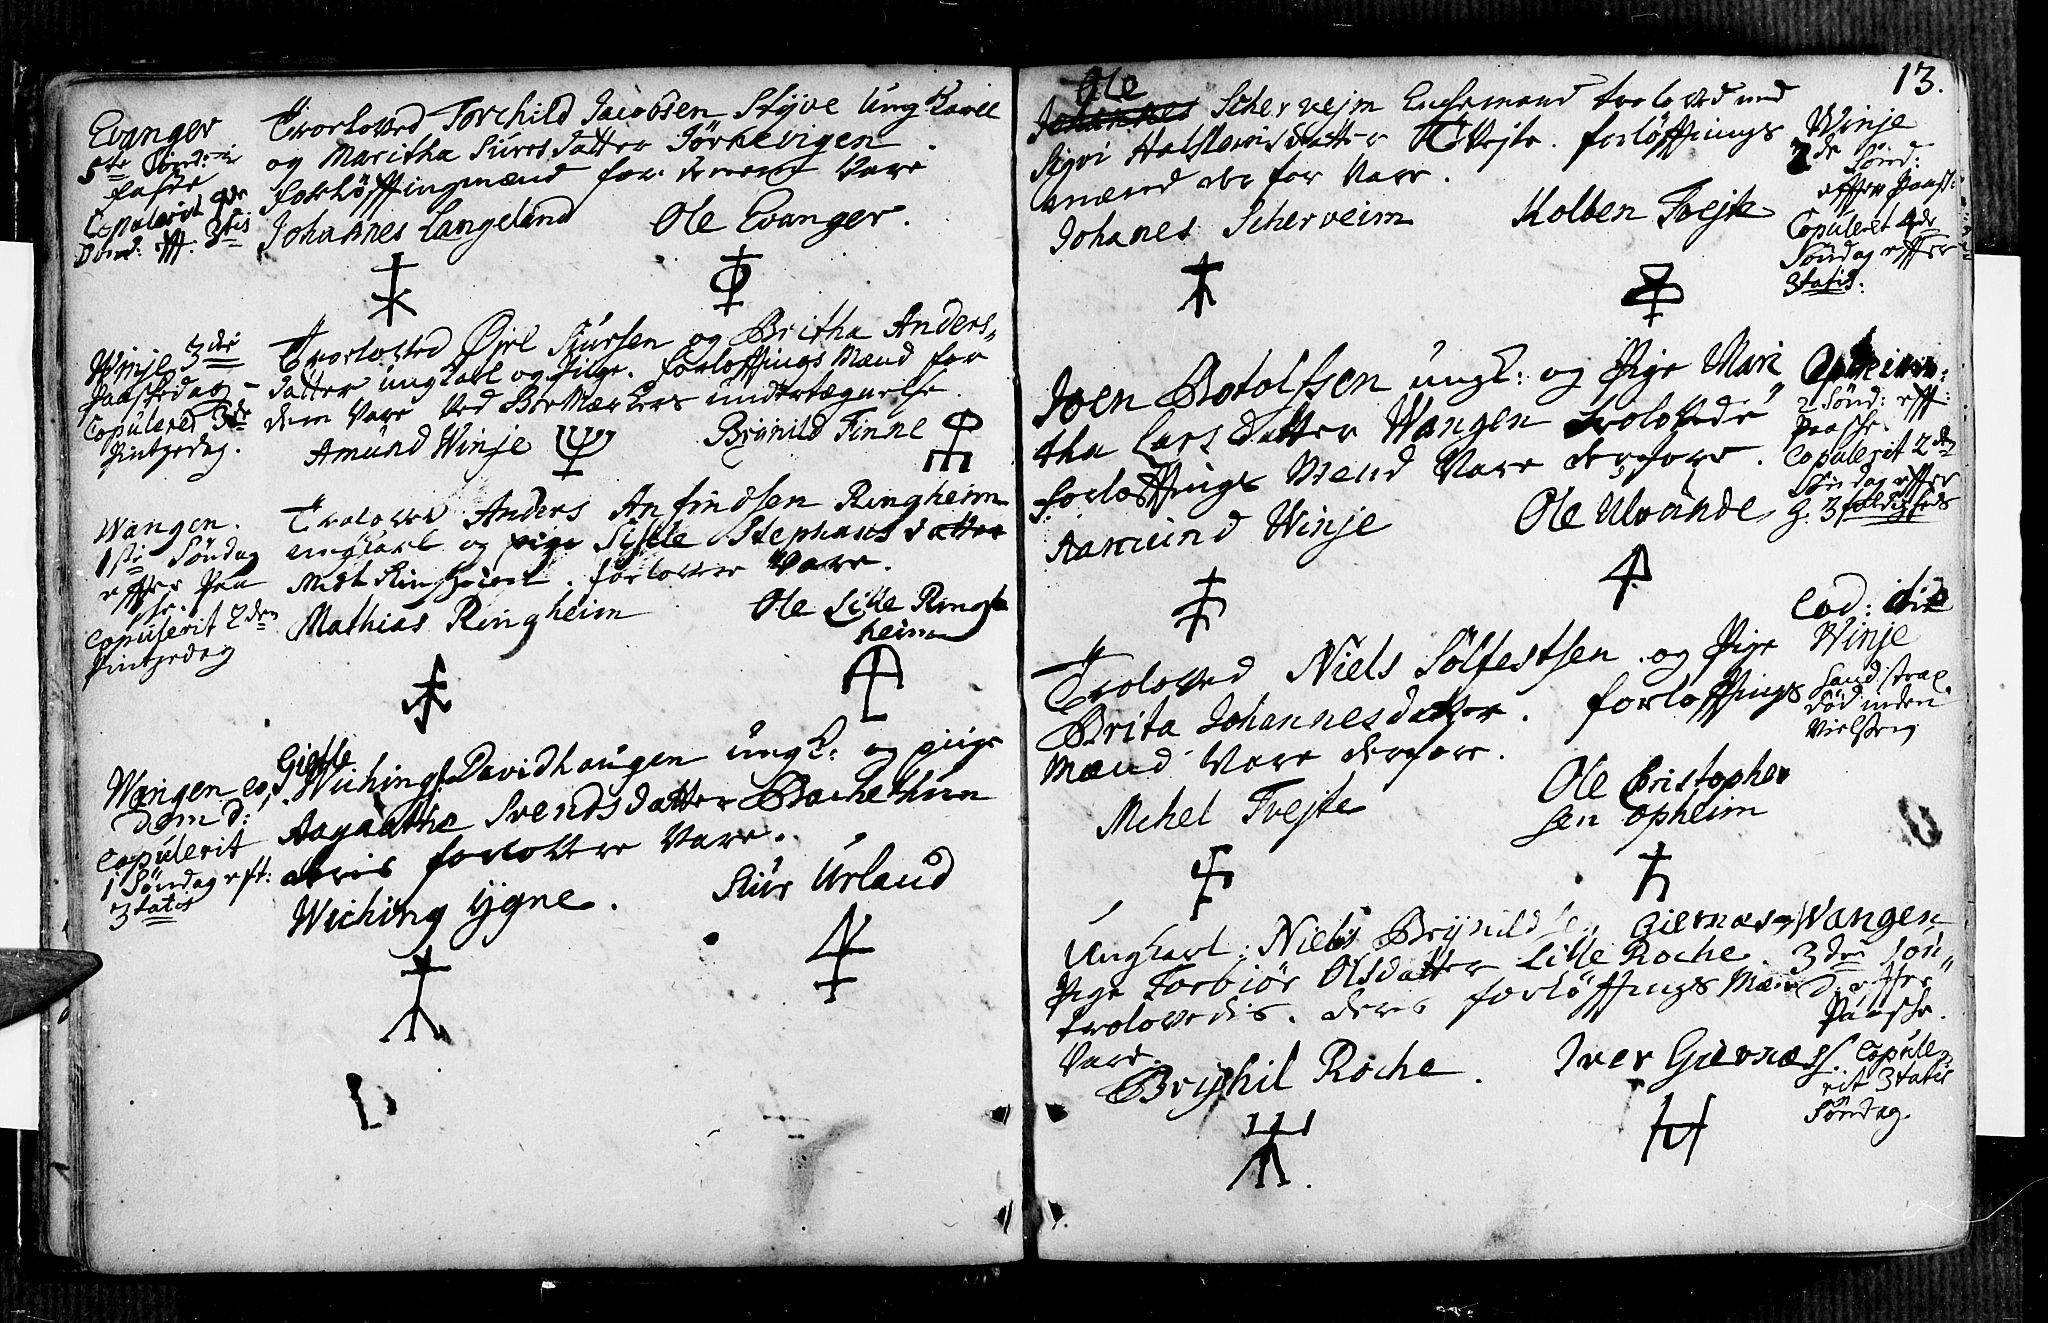 Evanger
5te Sönd: i
Faste
Copulerit 4de
Sönd: eff: 3tis
Trorloved Torchild Jacobsen Styve Ung Karll
og Maritha Siursdatter Hörnevigen
Forlöffingmænd for dennem Vare
Johannes Langeland Ole Evanger.
Winje 3die
Paaschedag -
Copuleret 3de
Pintzedag.
Trorloved Öjel Siursen og Britha Anders,,
datter ungkarl og Pige. forlöffings Mænd for
dem Vare Ved Boe Mærkers undertægnelse.
Amund Winje Brÿnild Finne
Wangen.
1ste Söndag
effter Paa
sche.
Copulerit 2den
Pintzedag
Troloved Anders Anfindsen Ringheim
ungkarl og pige Sisille Stephansdatter
Midt Ringheim. forlovere Vare.
Mathias Ringheim Ole Lille Ring
heim
Wangen eo,,
dem d:
Copulerit
1 Söndag eft:
3tatis
Gietle
Wichings. Davidhaugen ungk: og piige
Aagaathe Svendsdatter Bachethun
deris forlovere Vare.
Wiching Ygne. Siur Urland
13.
Ole
Johannes Schervejm Enchemand trolovedmed
Sigvi Halsteinsdatter Tvejte. forlöffings
mænd der for Vare.
Johanes Scherveim Kolben Tvejte
Winje
2de Sönd:
effter Paasche
Copuleret 4de
Söndag effter
3tatis.
Joen Botolfsen ungk: og Pige Mari,,
tha Larsdatter Wangen trolovede
forlöffings Mend Vare derfore.
Aamund Winje Ole Ulvunde
Opheim:
2 Sönd: eff:
Paasche
Copulerit 2den
Söndag effter
3foldigheds
Troloved Niels Sölfestsen. og Pige
Brita Johannesdatter. forlöffings
Mænd Vare derfore.
Mchel Tvejte Ole Cristopher
sen opheim
Eod: die
Winje
Hand strax
död inden
Vielsen
Ungkarl: Niels Brÿnildsen Giernæs og
Pige Torbiör Olsdatter Lille Roche.
trolovedis. deris forlöffings Mænd
Vare.
Brÿnil Roche. Iver Giernæs.
Wangen
3den Sön,,
d. effter
Paasche.
Copule,,
rit 3tatis
Söndag.